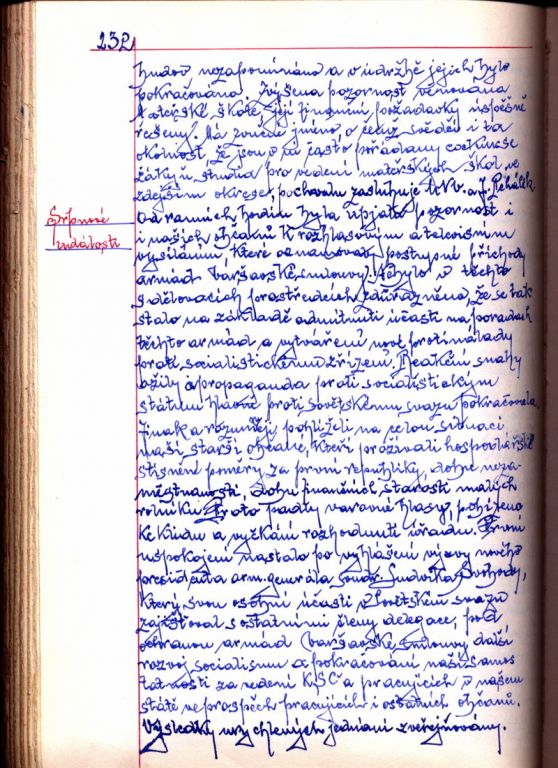 232
budov nezapomínáno a v údržbě jejich bylo
pokračováno. Zvýšena pozornost věnována
Mateřské škole, její finanční požadavky úspěšně
řešeny. Má zvučné jméno, o čemž svědčí i ta
okolnost, že jsou v ní často pořádány exkurse
žákyň, studia pro vedení mateřských škol ve
zdejším okrese, pochvalu zasluhuje MNV. a J. Řehálek.
Srpnové
události
Od ranních hodin byla upjata pozornost i
i našich občanů k rozhlasovým a televisním
vysíláním, které oznamovaly postupné příchody
armád Varšavské smlouvy. Nebylo v těchto
sdělovacích prostředcích zdůrazněno, že se tak
stalo na základě odmítnutí účasti na poradách
těchto armád a vytváření nové protinálady
proti socialistickému zřízení. Reakční snahy
ožily a propaganda proti socialistickým
státům hlavně proti Sovětskému svazu pokračovala.
Jinak a rozumněji pohlíželi na celou situaci
naši starší občané, kteří prožívali hospodářské
stísněné poměry za první republiky, dobu neza-
městnanosti, dobu finančních starostí malých
rolníků. Proto padly varovné hlasy, pobízeno
ke klidu a vyčkání rozhodnutí úřadů. První
uspokojení nastalo po vyhlášení výzvy nového
presidenta arm. generála soudr. Ludvíka Svobody,
který svou osobní účastí v Sovětském svazu
zajišťoval s ostatními členy delegace, pod
ochranou armád Varšavské smlouvy další
rozvoj socialismu a pokračování naší samos
tatnosti za vedení KSČ a pracujících v našem
státě ve prospěch pracujících i ostatních občanů.
Výsledky urychlených jednání zveřejňovány.